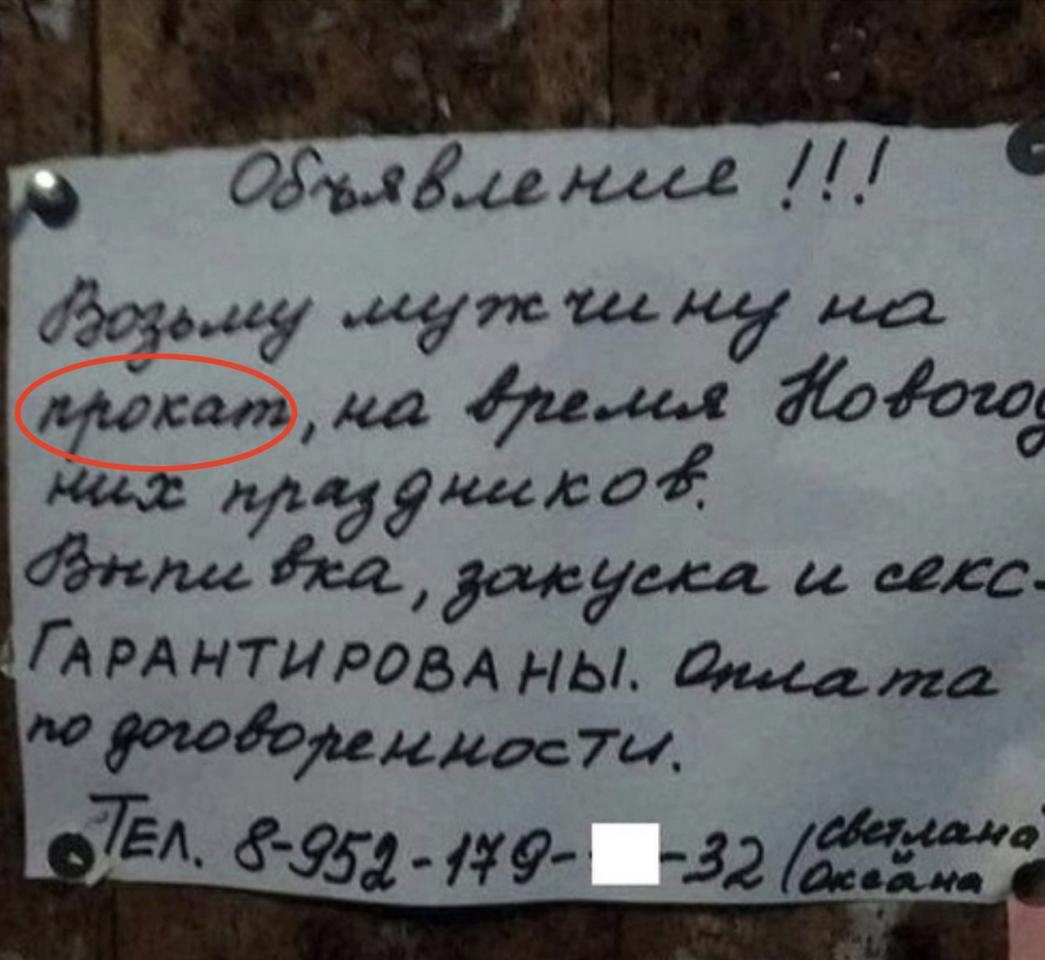 Объявление !!!
Возьму мужчину на
прокат, на время Новогод
них праздников.
Выпивка, закуска и секс-
ГАРАНТИРОВАНЫ. Оплата
по договоренности.
ТЕЛ. 8-952-179- -32 (Светлана
Оксана